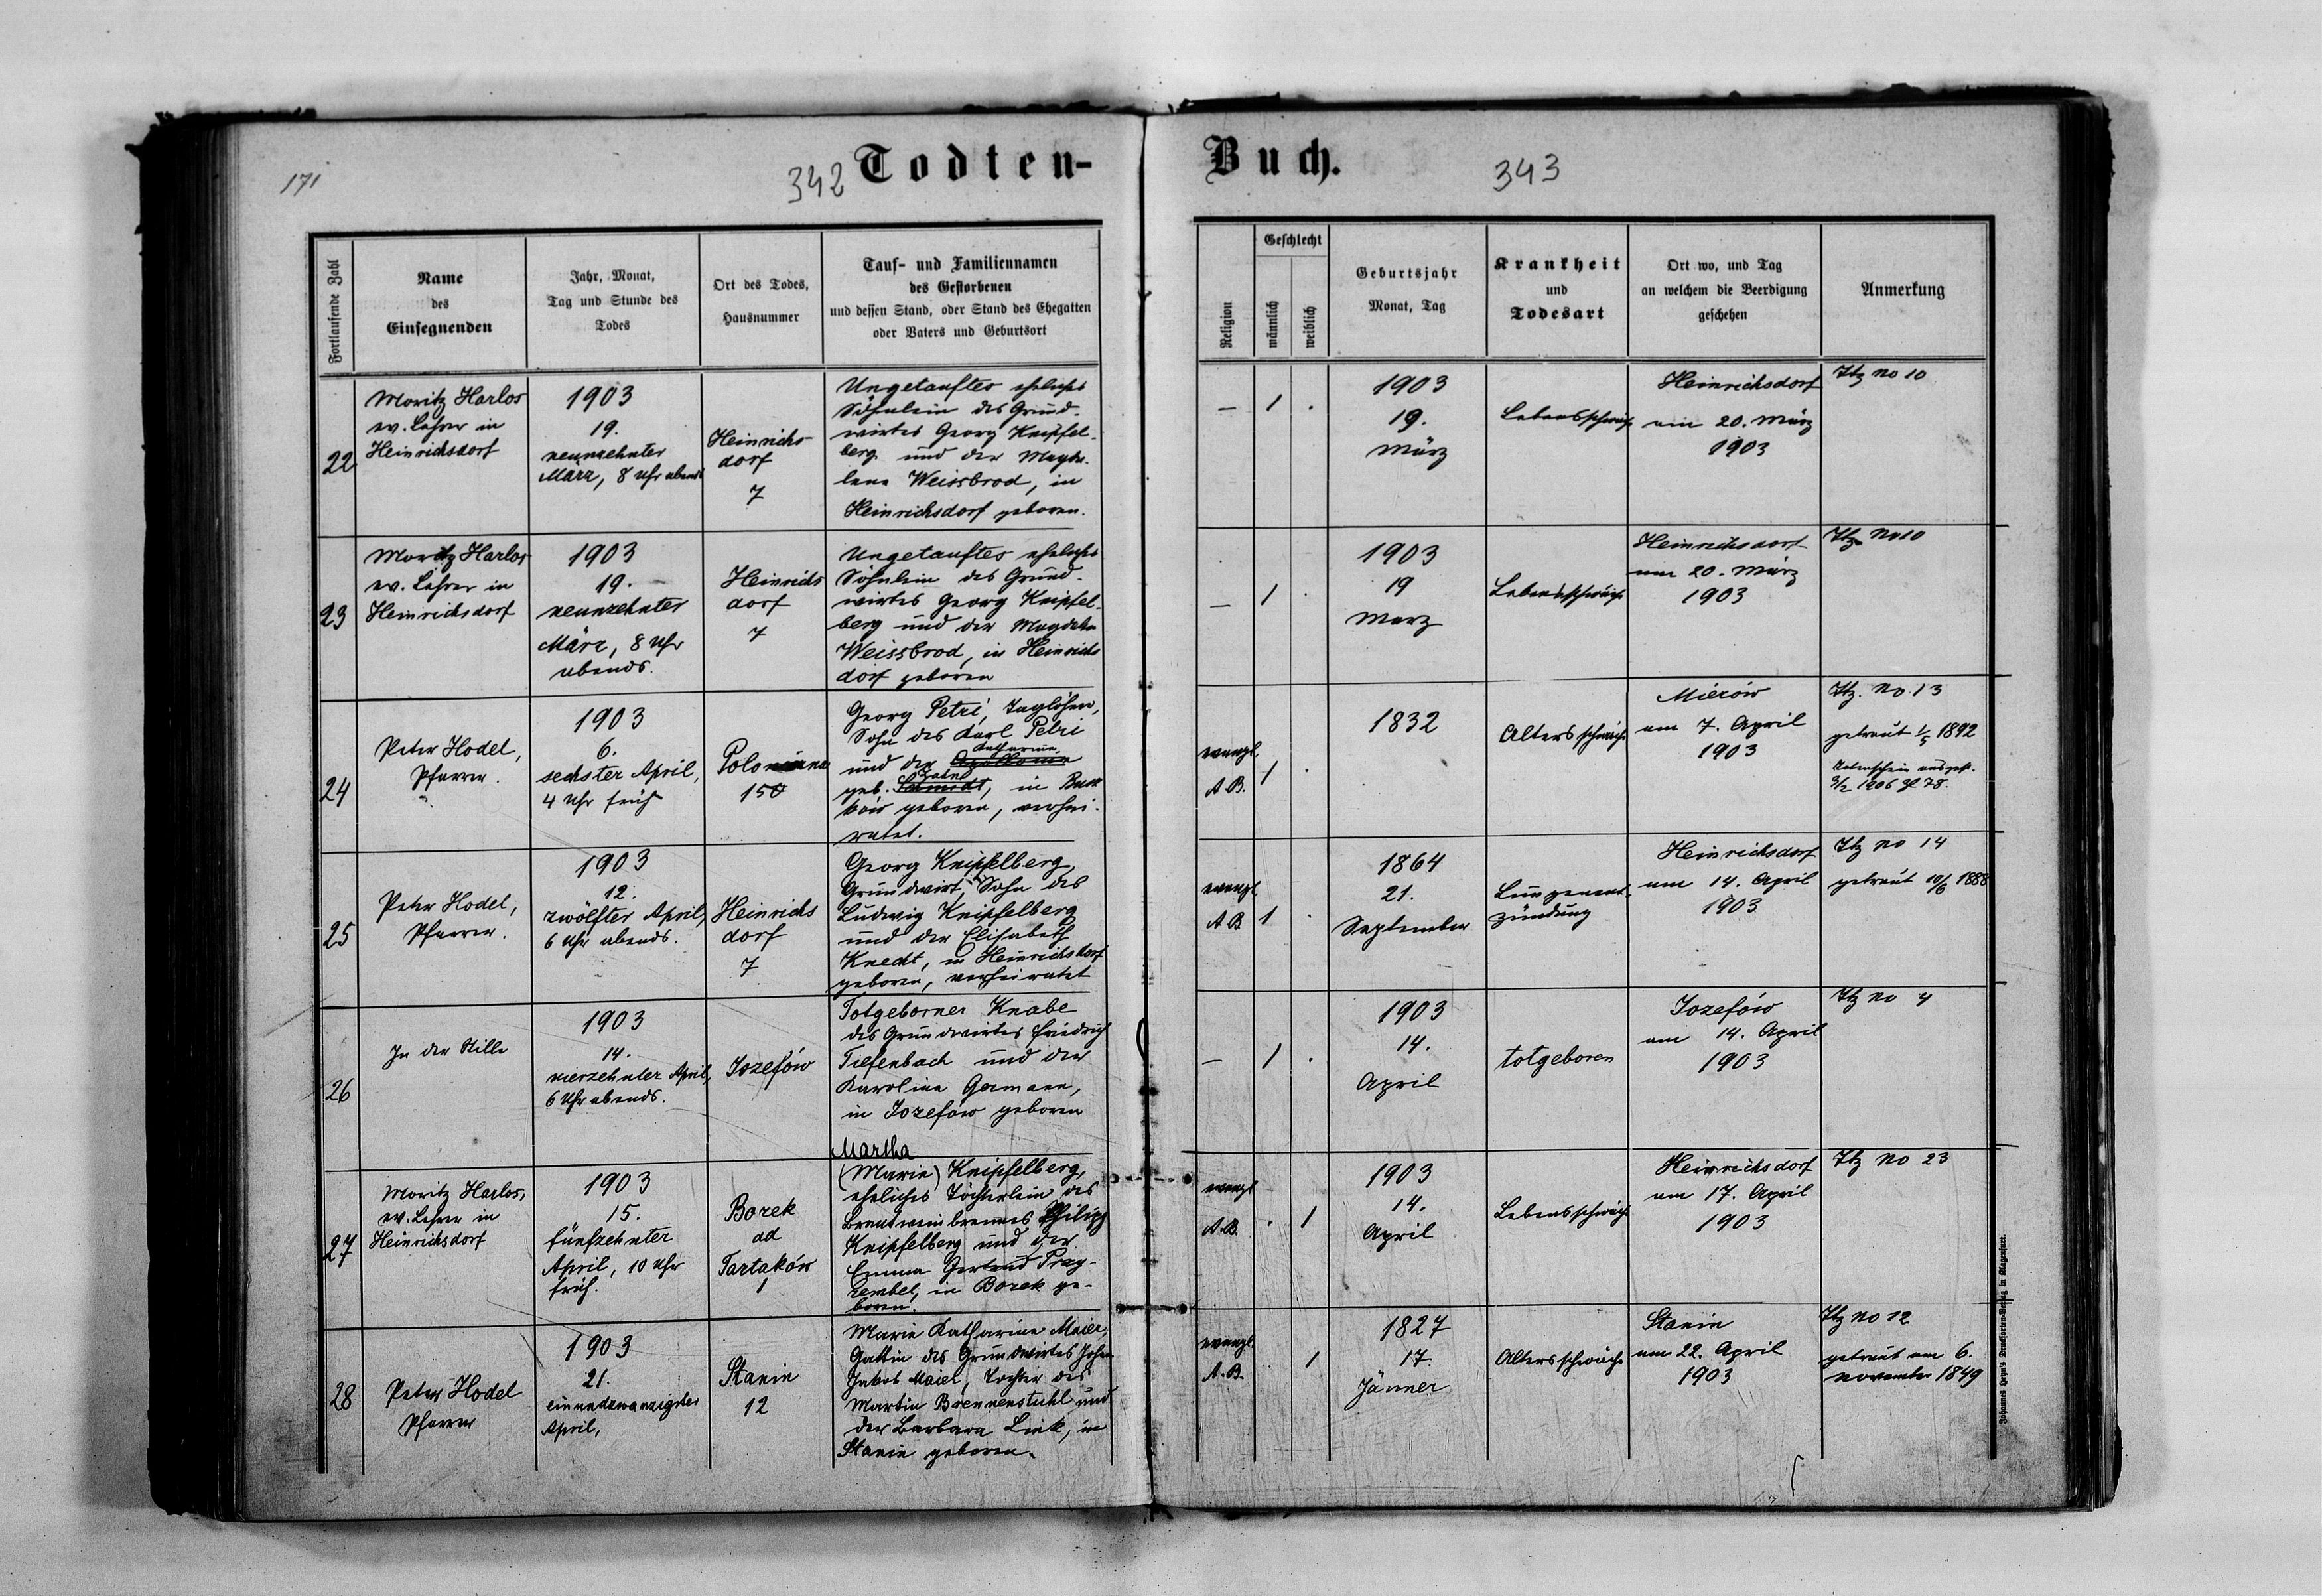 171
342 Todten-
Buch. 343
Fortlaufende Zahl
Name
des
Einsegnenden
Jahr, Monat,
Tag und Stunde des
Todes
Ort des Todes,
Hausnummer
Tauf- und Familiennamen
des Gestorbenen
und dessen Stand, oder Stand des Ehegatten
oder Vaters und Geburtsort
Religion
Geschlecht
männlich
weiblich
Geburtsjahr
Monat, Tag
Krankheit
und
Todesart
Ort wo, und Tag
an welchem die Beerdigung
geschehen
Anmerkung
22
Moritz Harlos
ev. Lehrer in
Heinrichsdorf
1903
19.
neunzehnter
März, 8 Uhr abends
Heinrichs-
dorf
7
Ungetauftes eheliches
Söhnlein des Grund-
wirtes Georg Knipfel-
berg und der Magda-
lena Weissbrod, in
Heinrichsdorf geboren.
— 1 .
1903
19.
März
Lebensschwäche
Heinrichsdorf
am 20. März
1903
Itz No 10
23
Moritz Harlos
ev. Lehrer in
Heinrichsdorf
1903
19.
neunzehnter
März, 8 Uhr
abends.
Heinrichs
dorf
7
Ungetauftes eheliches
Söhnlein des Grund-
wirtes Georg Knipfel-
berg und der Magdalena
Weissbrod, in Heinrichs
dorf geboren
— 1 .
1903
19
März
Lebensschwäche
Heinrichsdorf
am 20. März
1903
Itz No 10
24
Peter Hodel,
Pfarrer.
1903
6.
sechster April,
4 Uhr früh
15
Georg Petri, Taglöhner,
Sohn des Karl Petri
Katharina
und der Apollonia
geb. Schmidt, in
geboren, verhei-
ratet.
evangl.
A.B.
1 .
1832
Altersschwäche
Mierów
am 7. April
1903
Itz. No 13
getraut 1/5 1892
1906 Zl 78.
25
Peter Hodel,
Pfarrer.
1903
12.
zwölfter April,
6 Uhr abends.
Heinrichs
dorf
7
Georg Knipfelberg,
Grundwirt, Sohn des
Ludwig Knipfelberg
und der Elisabeth
Knecht, in Heinrichsdorf
geboren, verheiratet
evangl.
A B
1 .
1864
21.
September
Lungenent-
zündung
Heinrichsdorf
am 14. April
1903
Itz No 14
getraut 10/6 1888
26
In der Stille
1903
14.
vierzehnter April,
6 Uhr abends.
Jozefów
Totgeborner Knabe
des Grundwirtes Friedrich
Tiefenbach und der
Karolina Germann,
in Jozefów geboren
— 1 .
1903
14.
April
totgeboren
Jozefów
am 14. April
1903
Itz No 4
27
Moritz Harlos,
ev. Lehrer in
Heinrichsdorf
1903
15.
fünfzehnter
April, 10 Uhr
früh.
Borek
ad
Tartaków
1
Martha
(Maria) Knipfelberg,
eheliches Töchterlein des
Brantweinbrenners Philipp
Knipfelberg und der
Emma Gertrud Prag-
zembel, in Borek ge-
boren.
evangl
A.B.
. 1
1903
14.
April
Lebensschwäche
Heinrichsdorf
am 17. April
1903
Itz No 23
28
Peter Hodel
Pfarrer
1903
21.
einundzwanzigster
April,
Stanin
12
Maria Katharina Maier,
Gattin des Grundwirtes Johann
Jakob Maier, Tochter des
Martin Brennenstuhl und
der Barbara Link, in
Stanin geboren.
evangl.
A.B.
. 1
1827
17.
Jänner
Altersschwäche
Stanin
am 22. April
1903
Itz No 12
getraut am 6.
November 1849
Johannes Heyn's Drucksorten-Verlag in Klagenfurt.